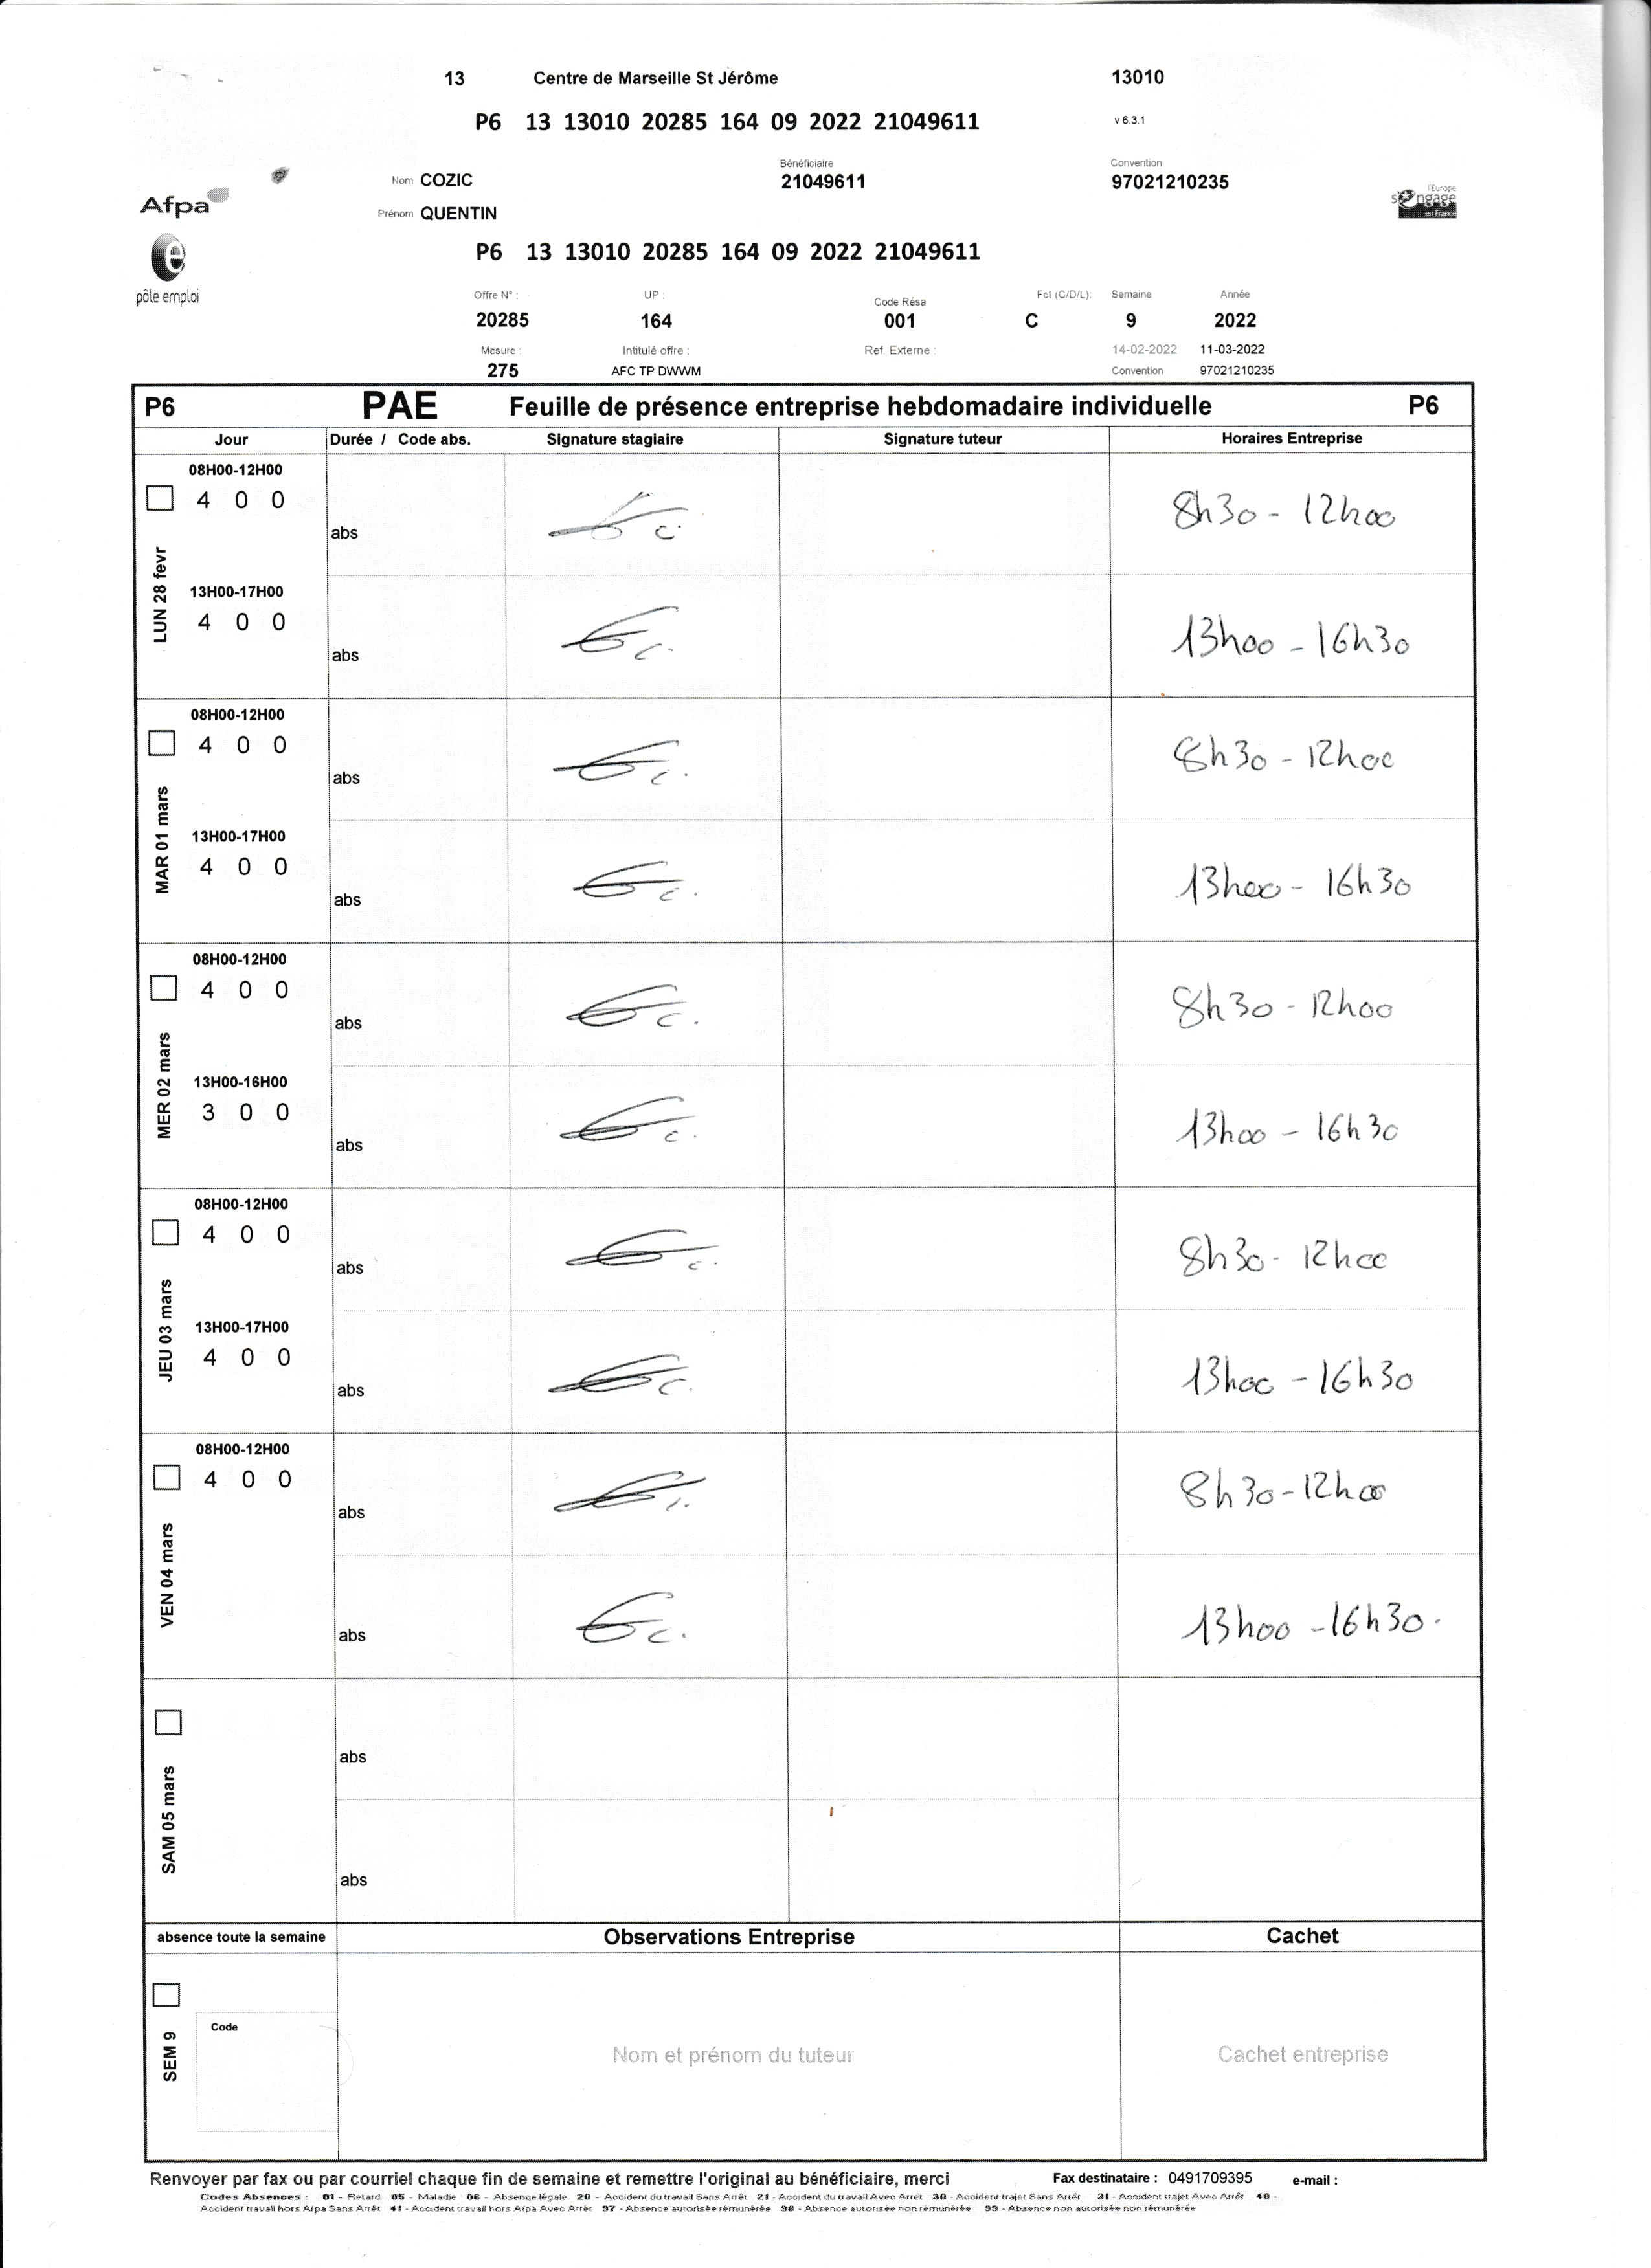 13 Centre de Marseille St Jérôme 13010
P6 13 13010 20285 164 09 2022 21049611 v 6.3.1
Bénéficiaire Convention
Nom COZIC 21049611 97021210235
Afpa
Prénom QUENTIN
l'Europe
s'engage
en France
P6 13 13010 20285 164 09 2022 21049611
pôle emploi
Offre N° : UP : Code Résa Fct (C/D/L): Semaine Année
20285 164 001 C 9 2022
Mesure : Intitulé offre : Ref. Externe : 14-02-2022 11-03-2022
275 AFC TP DWWM Convention 97021210235
P6 PAE Feuille de présence entreprise hebdomadaire individuelle P6
Jour Durée / Code abs. Signature stagiaire Signature tuteur Horaires Entreprise
LUN 28 fevr
08H00-12H00
4 0 0 abs 8h30 - 12h00
13H00-17H00
4 0 0 abs 13h00 - 16h30
MAR 01 mars
08H00-12H00
4 0 0 abs 8h30 - 12h00
13H00-17H00
4 0 0 abs 13h00 - 16h30
MER 02 mars
08H00-12H00
4 0 0 abs 8h30 - 12h00
13H00-16H00
3 0 0 abs 13h00 - 16h30
JEU 03 mars
08H00-12H00
4 0 0 abs 8h30 - 12h00
13H00-17H00
4 0 0 abs 13h00 - 16h30
VEN 04 mars
08H00-12H00
4 0 0 abs 8h30 - 12h00
abs 13h00 - 16h30.
SAM 05 mars
abs
abs
absence toute la semaine Observations Entreprise Cachet
SEM 9
Code
Nom et prénom du tuteur Cachet entreprise
Renvoyer par fax ou par courriel chaque fin de semaine et remettre l'original au bénéficiaire, merci Fax destinataire : 0491709395 e-mail :
Codes Absences : 01 - Retard 05 - Maladie 06 - Absence légale 20 - Accident du travail Sans Arrêt 21 - Accident du travail Avec Arrêt 30 - Accident trajet Sans Arrêt 31 - Accident trajet Avec Arrêt 40 -
Accident travail hors Afpa Sans Arrêt 41 - Accident travail hors Afpa Avec Arrêt 97 - Absence autorisée rémunérée 98 - Absence autorisée non rémunérée 99 - Absence non autorisée non rémunérée